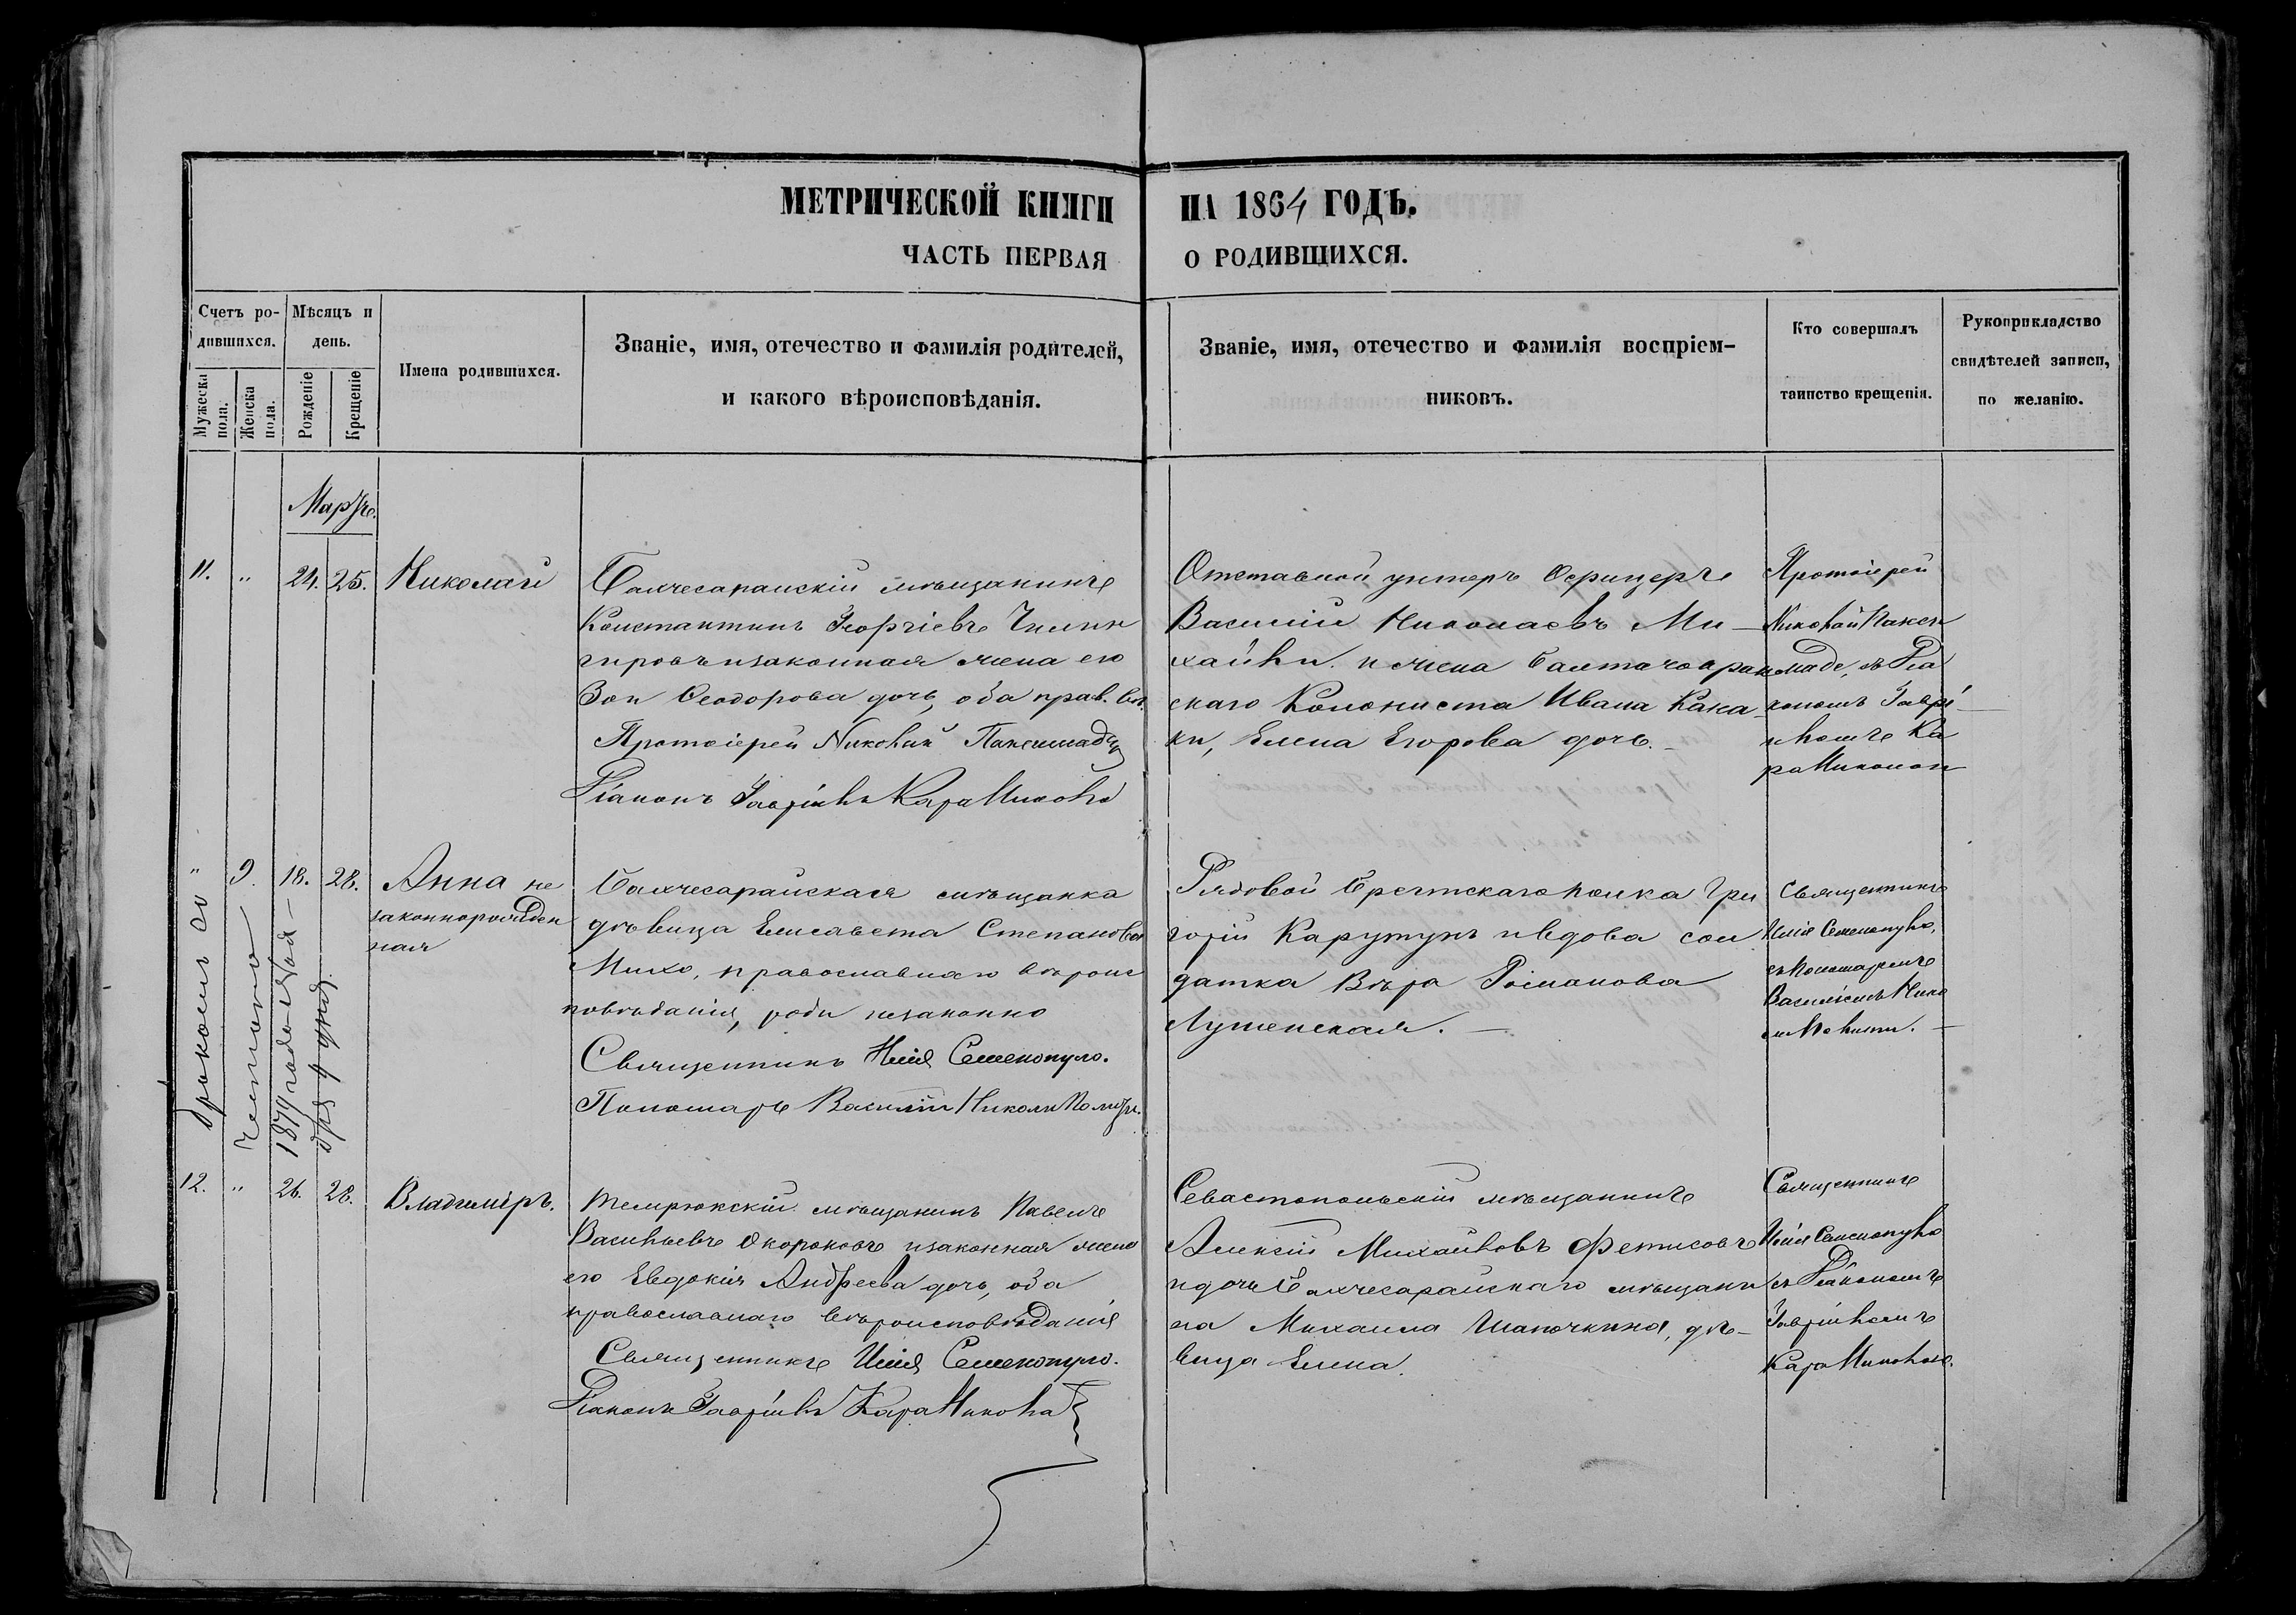 МЕТРИЧЕСКОЙ КНИГИ НА 1864 ГОДЪ.
ЧАСТЬ ПЕРВАЯ О РОДИВШИХСЯ.
Счетъ ро-
дившихся.
Мужеска пола.
Женска пола.
Мѣсяцъ и
день.
Рожденіе
Крещеніе
Имена родившихся.
Званіе, имя, отечество и фамилія родителей,
и какого вѣроисповѣданія.
Званіе, имя, отечество и фамилія воспріем-
никовъ.
Кто совершалъ
таинство крещенія.
Рукоприкладство
свидѣтелей записи,
по желанію.
Мартъ.
11. " 24. 25. Николай
Бахчесарайскій мѣщанинъ
Константинъ Георгіевъ
и законная жена его
Зои Ѳеодорова дочь, оба прав. вѣ.
Протоіерей Николай Паксимади
Діаконъ Гавріилъ КараНикола
Отставной унтеръ Офицеръ
Василій Николаевъ Ми-
хайли. и жена
скаго Колониста Ивана Кака-
ки, Елена Егорова дочь.
Протоіерей
Николай Пакси
маде, съ Діа
кономъ Гаврі-
иломъ Ка
раНиколои
" 9. 18. 28. Анна не
законнорожден
ная
Бахчесарайская мѣщанка
дѣвица Елисавета Степанова
Михо, православнаго вѣроис
повѣданія, роди незаконно
Священникъ Илія Семенопуло.
Пономарь Василій
Рядовой Брестскаго полка Гри
горій Карутунъ и вдова сол
датка Вѣра Романова
Лушенская.
Священникъ
Илія Семенопуло,
съ Пономаремъ
Василіемъ Нико
1874 года Ноя-
бря 4 дня
12. " 26. 28. Владиміръ.
Темрюкскій мѣщанинъ Павелъ
Васильевъ Скороковъ и законная жена
его Евдокія Андреева дочь, оба
православнаго вѣроисповѣданія
Священникъ Илія Семенопуло.
Діаконъ Гавріилъ КараНикола
Севастопольскій мѣщанинъ
Алексій Михайловъ Фетисовъ
и дочь Бахчесарайскаго мѣщани
на Михаила Шапочкина, дѣ-
вица Елена.
Священникъ
Илія Семенопуло
съ Діакономъ
Гавріиломъ
КараНиколою.